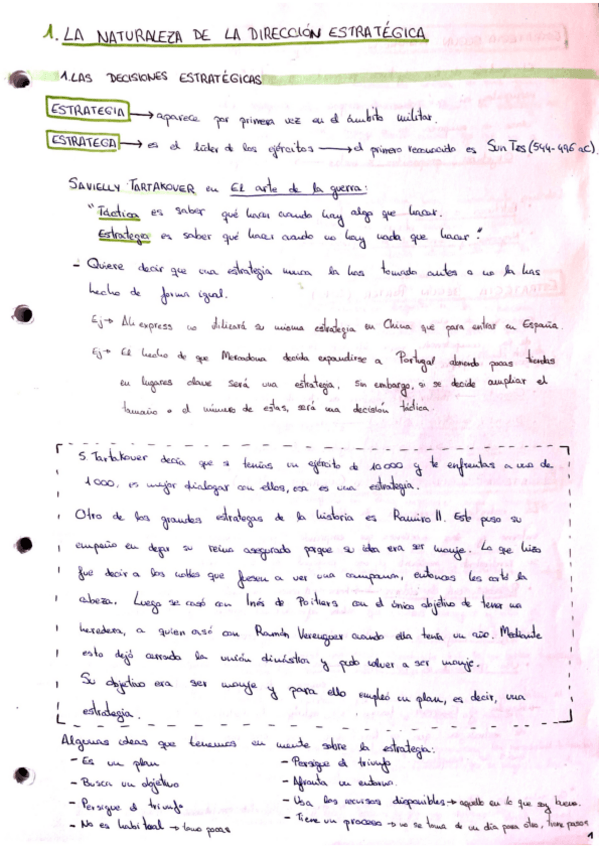 1. LA NATURALEZA DE LA DIRECCIÓN ESTRATÉGICA
1. LAS DECISIONES ESTRATÉGICAS
ESTRATEGIA → aparece por primera vez en el ámbito militar.
ESTRATEGA → es el líder de los ejércitos → el primero reconocido es Sun Tzs (544-496 aC).
SAVIELLY TARTAKOVER en El arte de la guerra:
"Táctica es saber qué hacer cuando hay algo que hacer.
Estrategia es saber qué hacer cuando no hay nada que hacer."
- Quiere decir que una estrategia nunca la has tomado antes o no la has
hecho de forma igual.
Ej → Ali express no utilizará su misma estrategia en China que para entrar en España.
Ej → El hecho de que Mercadona decida expandirse a Portugal abriendo pocas tiendas
en lugares clave será una estrategia. Sin embargo, si se decide ampliar el
tamaño o el número de estas, será una decisión táctica.
S. Tartakover decía que si tenías un ejército de 10.000 y te enfrentas a uno de
1000, es mejor dialogar con ellos, esa es una estrategia.
Otro de los grandes estrategas de la historia es Ramiro II. Este puso su
empeño en dejar su reino asegurado porque su idea era ser monje. Lo que hizo
fue decir a los nobles que fuesen a ver una campana, entonces les cortó la
cabeza. Luego se casó con Inés de Poitiers con el único objetivo de tener una
heredera, a quien casó con Ramón Verenguer cuando ella tenía un año. Mediante
esto dejó cerrada la unión dinástica y pudo volver a ser monje.
Su objetivo era ser monje y para ello empleó un plan, es decir, una
estrategia.
Algunas ideas que tenemos en mente sobre la estrategia:
- Es un plan
- Busca un objetivo
- Persigue el triunfo
- No es habitual → tomo pocas
- Persigue el triunfo
- Afronta un entorno.
- Usa los recursos disponibles → aquello en lo que soy bueno.
- Tiene un proceso → no se toma de un día para otro, tiene pasos
1